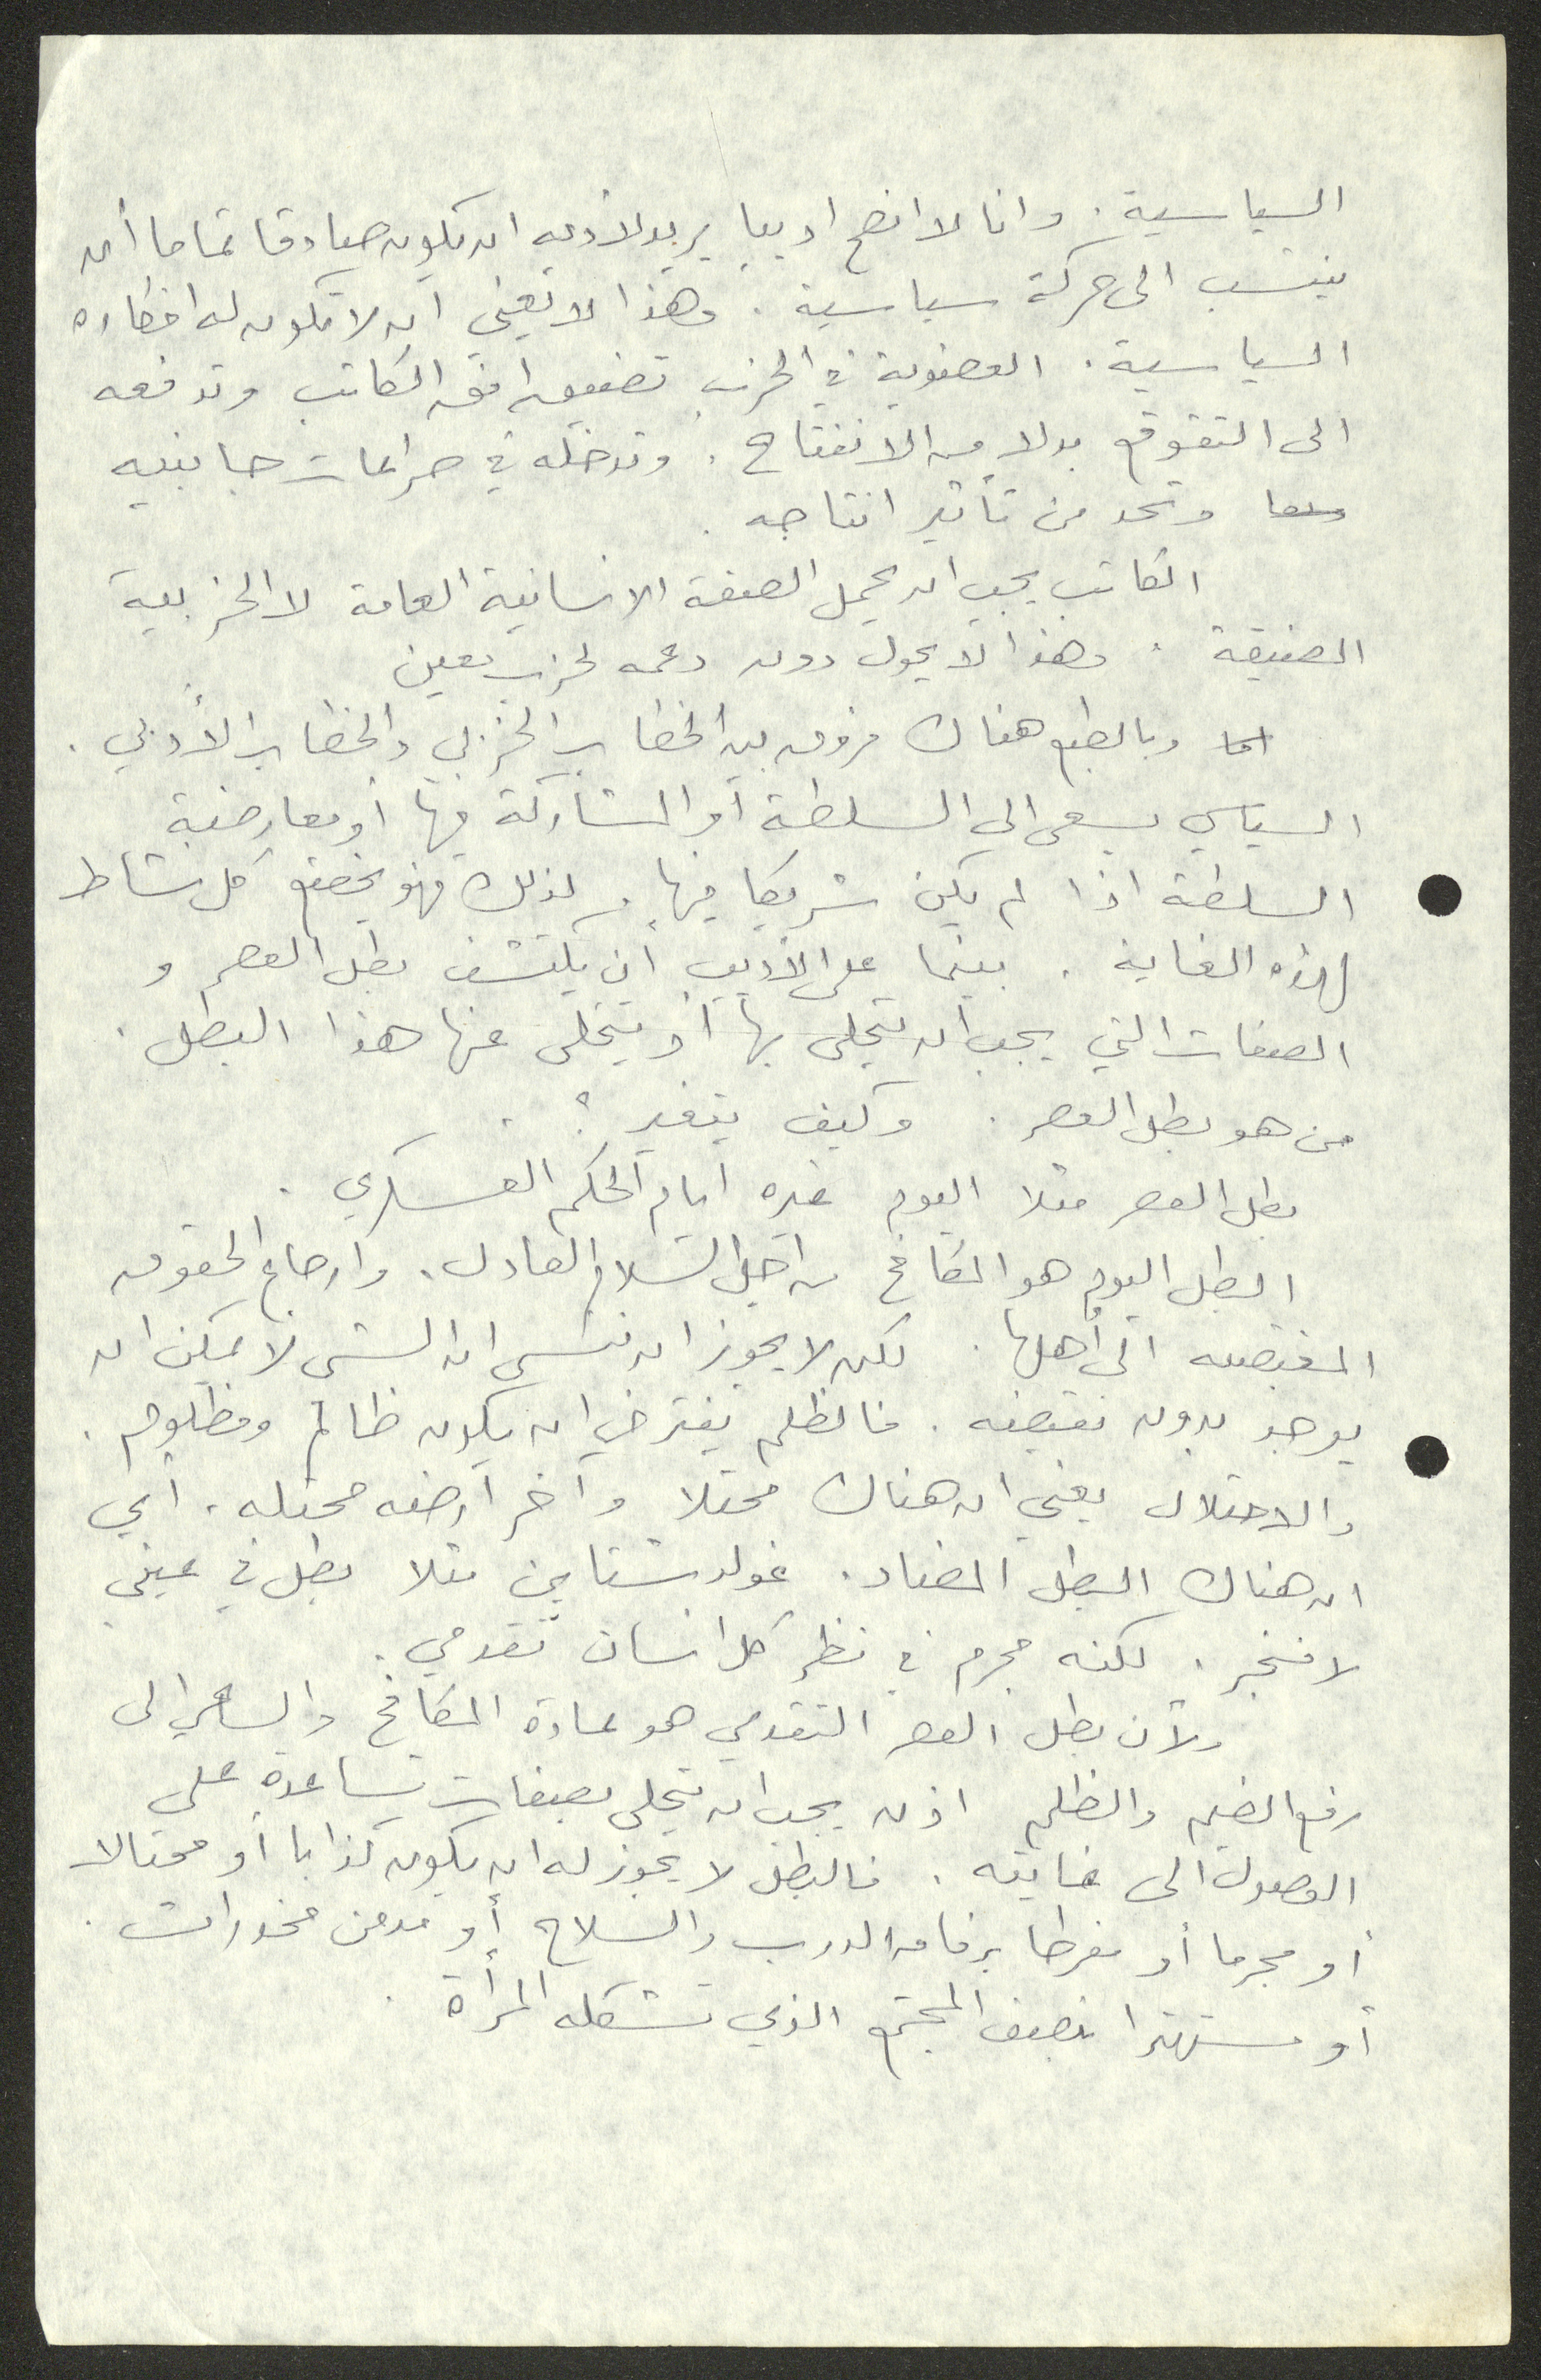 السياسية. وانا لا انصح اديبا يريد لأدبه ان يكون صادقا تماما أن
ينتسب الى حركة سياسية. وهذا لا يعني ان لا تكون له افكاره
السياسية. العضوية في الحزب تضييق افق الكاتب وتدفعه
الى التقوقع بدلا من الانفتاح. وتدخله في صراعات جانبيه
وتحد من تأثير انتاجه.
الكاتب يجب ان يحمل الصفة الانسانية العامة لا الحزبية
الضيقة. وهذا لا يحول دون دعمه لحزب معين
اما وبالطبع هناك فروق بين الخطاب الحزبي والخطاب الأدبي.
السياسي يسعى الى السلطة أو المشاركة فيها أو معارضة
السلطة اذا لم يكن شريكا فيها. لذلك فهو يخضع كل نشاط
لهذه الغاية. بينما على الأديب أن يكتشف بطل العصر و
الصفات التي يجب ان يتحلى بها أو يتخلى عنها هذا البطل.
من هو بطل العصر. وكيف يتغير؟.
بطل العصر مثلا اليوم غيره ايام الحكم العسكري.
البطل اليوم هو المكافح من اجل السلام العادل. وارجاع الحقوق
المغتصبه الى أهلها. لكن لا يجوز ان ننسى ان الشي لا يمكن ان
يوجد بدون نقيضه. فالظلم يفترض ان يكون ظالم ومظلوم.
والاحتلال يعني ان هناك محتلا وآخر أرضه محتله. أي
ان هناك البطل المضاد. غولدشتاين مثلا بطل في عيني
لافنجر. لكنه مجرم في نظر كل انسان تقدمي.
ولأن بطل العصر التقدمي هو عادة المكافح والساعي الى
رفع الضيم والظلم اذن يجب ان يتحلى بصفات تساعده على
الوصول الى غايته. فالبطل لا يجوز له ان يكون كذابا أو محتالا
أو مجرما أو مفرطا برفاق الدرب والسلاح أو مدمن مخدرات.
أو مستهترا بنصف المجتمع الذي تشكله المرأة.